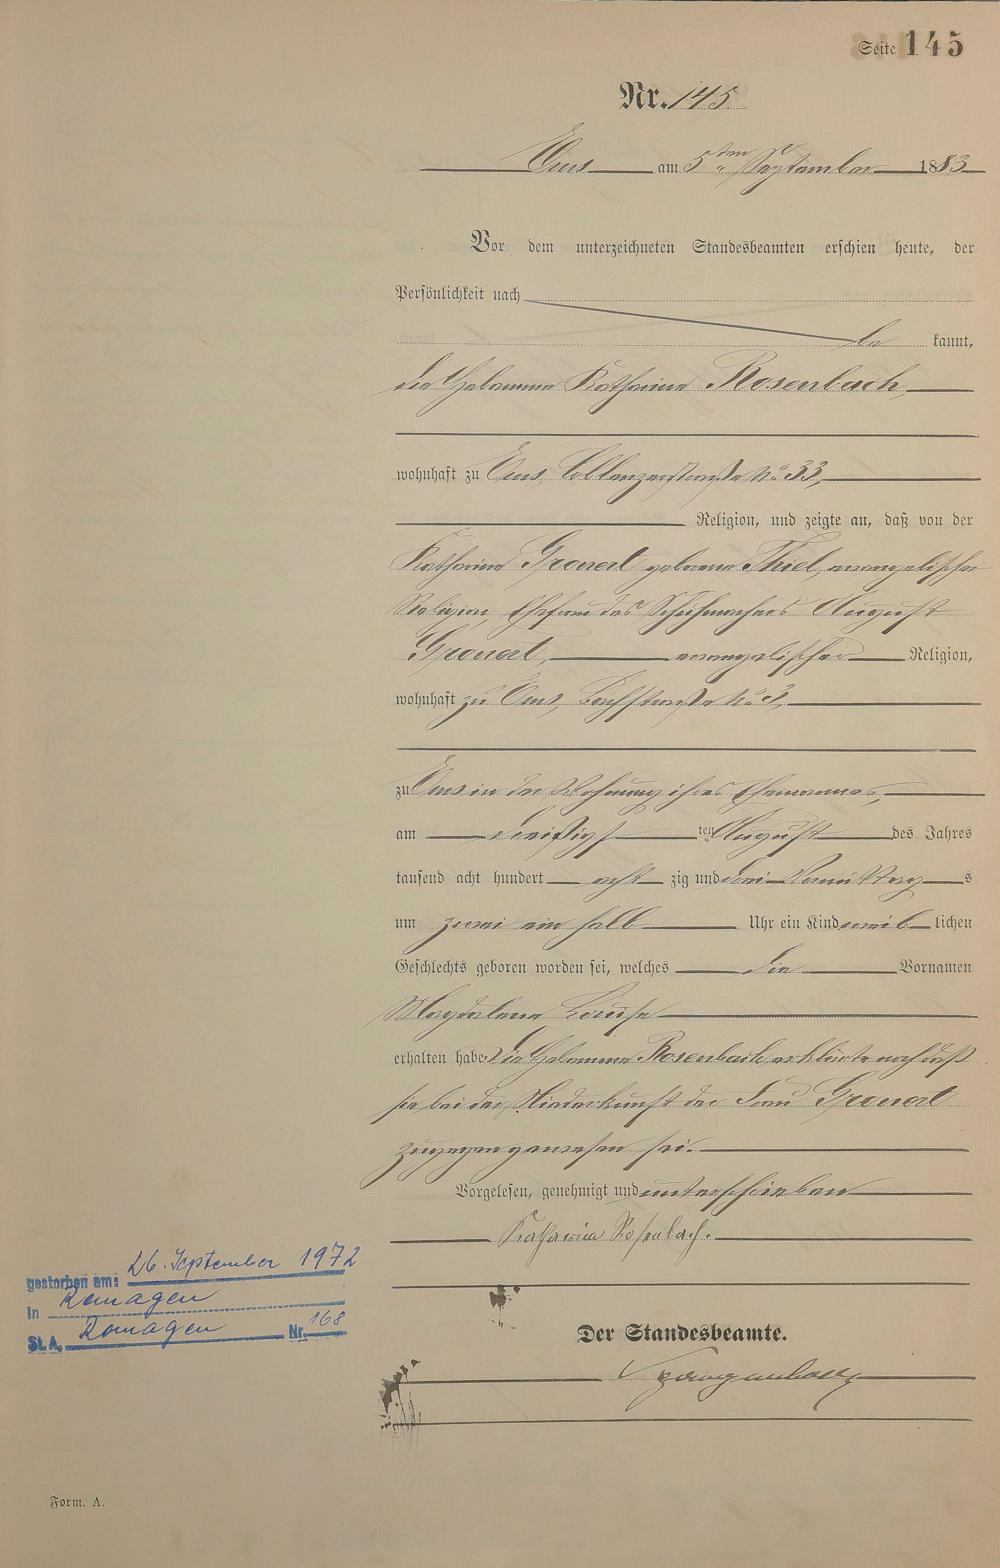 Seite 145
Nr. 145.
Ems am 5ten September 1883
Vor dem unterzeichneten Standesbeamten erschien heute, der
Persönlichkeit nach
be kannt,
die Hebamme Katharina Rosenbach,
wohnhaft zu Ems, Coblenzerstraße No. 33,
Religion, und zeigte an, daß von der
Katharina Grauert geborene Thiel, evangelischer
Religion, Ehefrau des Schuhmachers August
Grauert, evangelischer Religion,
wohnhaft zu Ems, Bachstraße No. 3,
zu Ems in der Wohnung ihres Ehemannes,
am dreißigsten August des Jahres
tausend acht hundert acht zig und drei Vormittags
um zwei ein halb Uhr ein Kind weib lichen
Geschlechts geboren worden sei, welches die Vornamen
Magdalena Louise
erhalten habe. Die Hebamme Rosenbach erklärte noch daß
sie bei der Niederkunft der Frau Grauert
zugegen gewesen sei.
Vorgelesen, genehmigt und unterschrieben
Katharina Rosenbach.
Der Standesbeamte.
gestorben am: 26. September 1972
in Remagen
St. A. Remagen Nr. 168
Form. A.